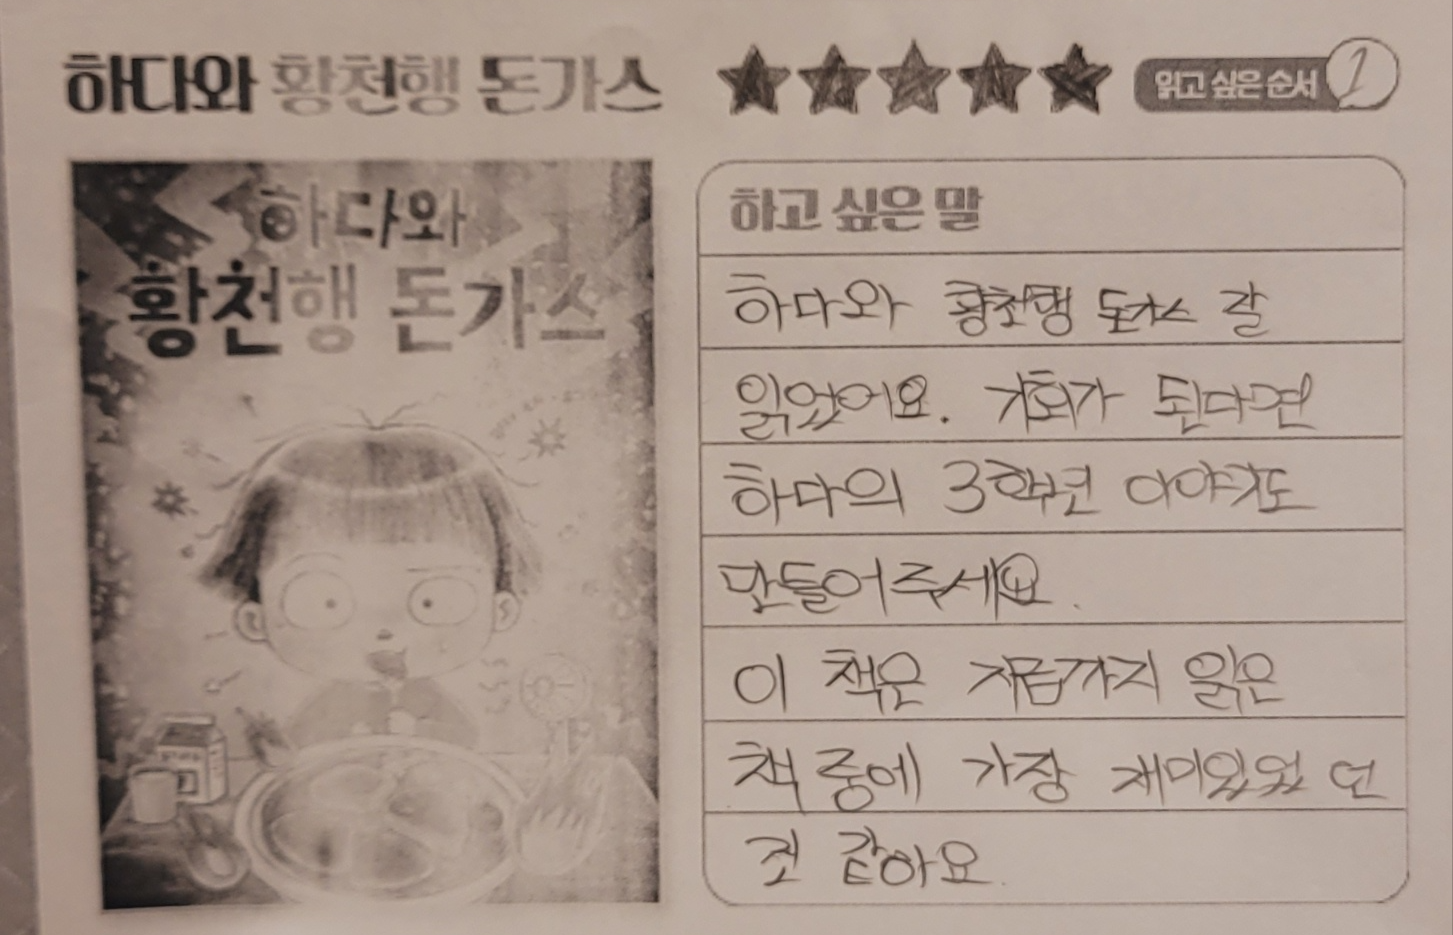 하다와 황천행 돈가스
읽고 싶은 순서 1
하다와
황천행 돈가스
하고 싶은 말
하다와 황천행 돈가스 잘
읽었어요. 기회가 된다면
하다의 3학년 이야기도
만들어주세요.
이 책은 지금까지 읽은
책 중에 가장 재미있었던
것 같아요.